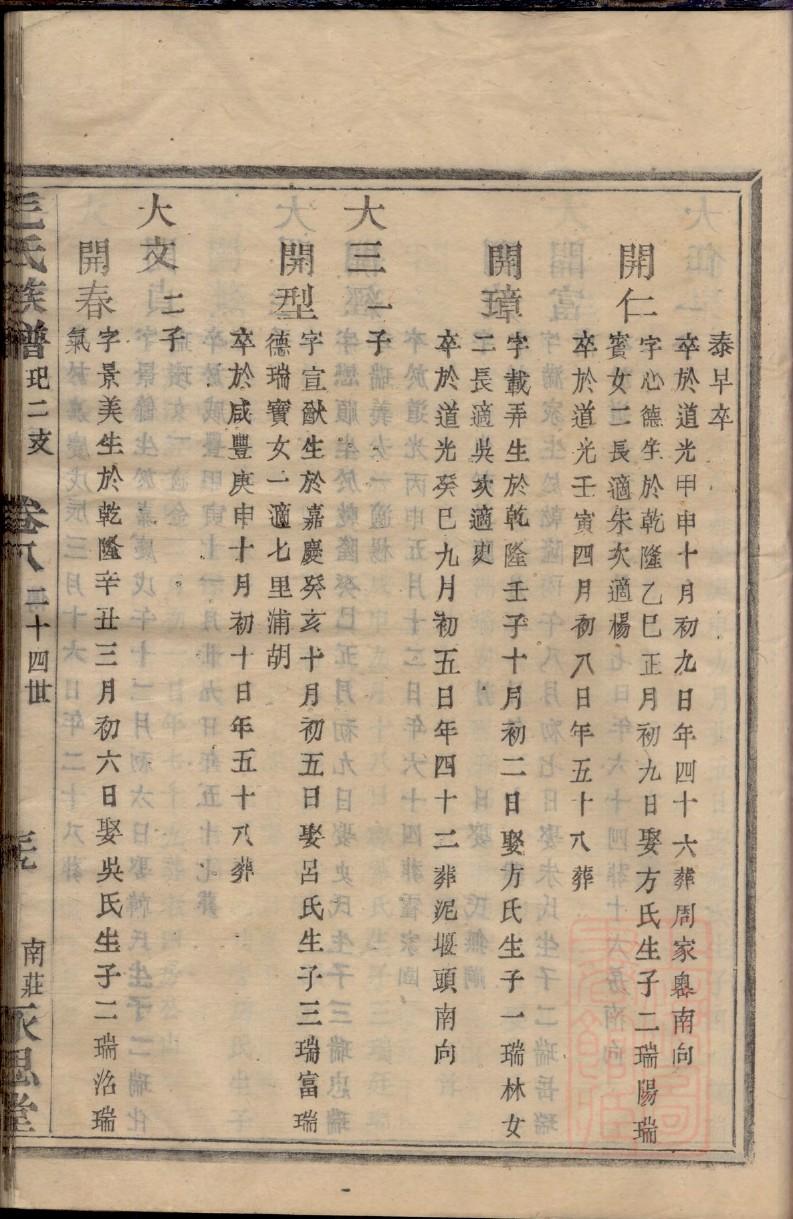 泰早卒
卒於道光甲申十月初九日年四十六葬周家㠗南向
開仁
字心德生於乾隆乙巳正月初九日娶方氏生子二瑞陽瑞
賓女二長適朱次適楊
卒於道光壬寅四月初八日年五十八葬
開璋
字載弄生於乾隆壬子十月初二日娶方氏生子一瑞林女
二長適吳次適更
卒於道光癸巳九月初五日年四十二葬泥堰頭南向
大三 一子
開型
字宣猷生於嘉慶癸亥十月初五日娶呂氏生子三瑞富瑞
德瑞寶女一適七里浦胡
卒於咸豐庚申十月初十日年五十八葬
大文 二子
開春
字景美生於乾隆辛丑三月初六日娶吳氏生子二瑞治瑞
氣
氏族譜 玘二支 卷八 二十四世 南莊 永思堂